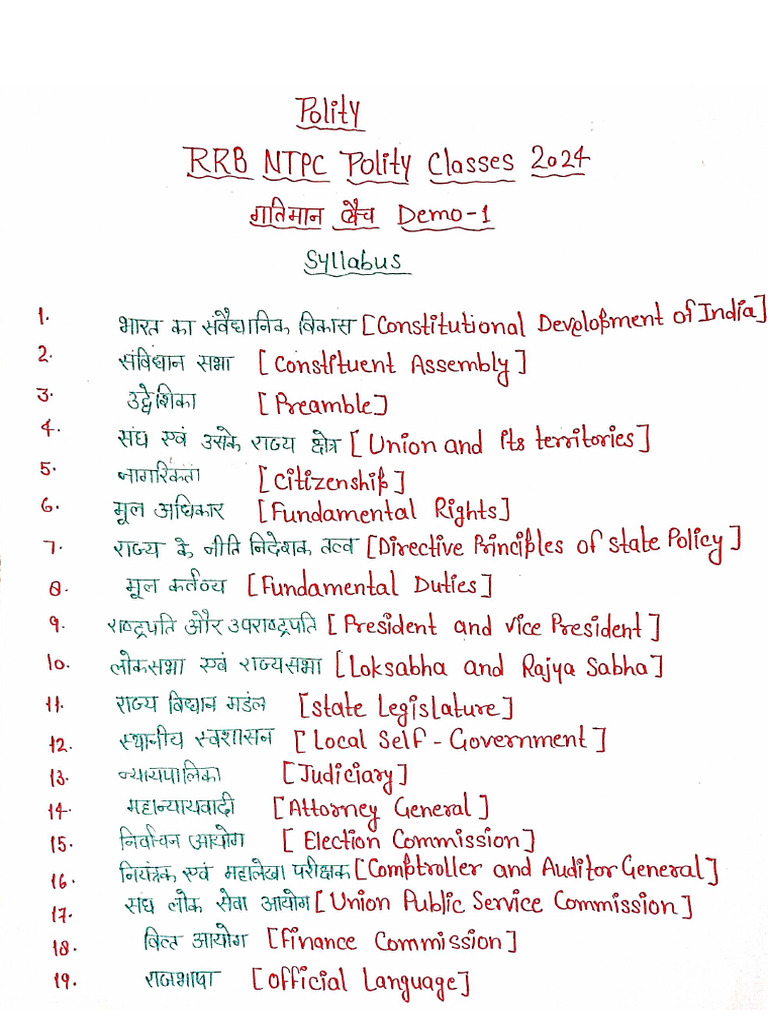 Polity
RRB NTPC Polity Classes 2024
गतिमान बैच Demo-1
Syllabus
1. भारत का संवैधानिक विकास [Constitutional Development of India]
2. संविधान सभा [Constituent Assembly]
3. उद्देशिका [Preamble]
4. संघ एवं उसके राज्य क्षेत्र [Union and its territories]
5. नागरिकता [Citizenship]
6. मूल अधिकार [Fundamental Rights]
7. राज्य के नीति निदेशक तत्व [Directive Principles of state Policy]
8. मूल कर्तव्य [Fundamental Duties]
9. राष्ट्रपति और उपराष्ट्रपति [President and vice President]
10. लोकसभा एवं राज्यसभा [Loksabha and Rajya Sabha]
11. राज्य विधान मडंल [state Legislature]
12. स्थानीय स्वशासन [Local Self-Government]
13. न्यायपालिका [Judiciary]
14. महान्यायवादी [Attorney General]
15. निर्वाचन आयोग [Election Commission]
16. नियंत्रक एवं महालेखा परीक्षक [Comptroller and Auditor General]
17. संघ लोक सेवा आयोग [Union Public Service Commission]
18. वित्त आयोग [Finance Commission]
19. राजभाषा [Official Language]